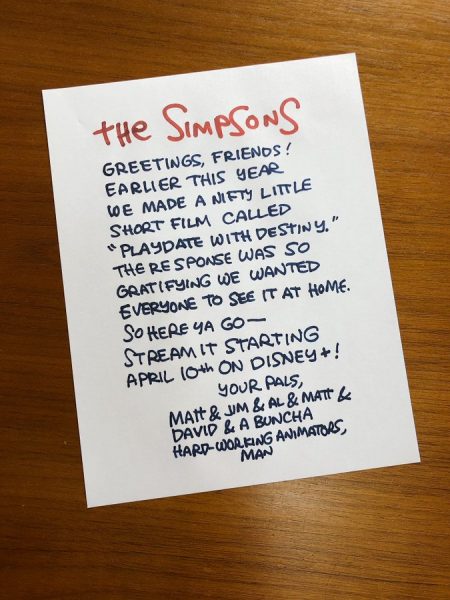 the SIMPSONS
GREETINGS, FRIENDS!
EARLIER THIS YEAR
WE MADE A NIFTY LITTLE
SHORT FILM CALLED
"PLAYDATE WITH DESTINY."
THE RESPONSE WAS SO
GRATIFYING WE WANTED
EVERYONE TO SEE IT AT HOME.
SO HERE YA GO—
STREAM IT STARTING
APRIL 10th ON DISNEY+!
YOUR PALS,
MATT & JIM & AL & MATT &
DAVID & A BUNCHA
HARD-WORKING ANIMATORS,
MAN